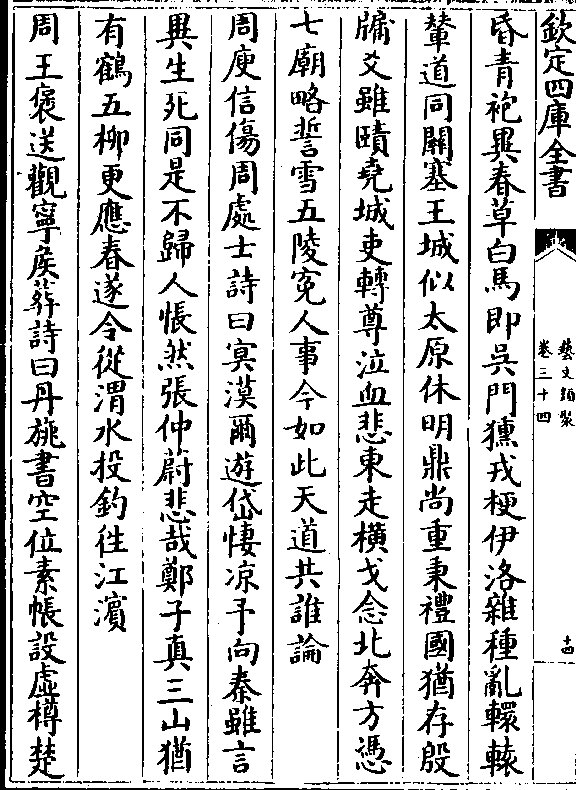 欽定四庫全書
藝文類聚
卷三十四
十四
昏青袍異春草白馬即吳門獯戎梗伊洛雜種亂轘轅
輦道同關塞王城似太原休明鼎尚重秉禮國猶存殷
牖爻雖賾堯城吏轉尊泣血悲東走橫戈念北奔方憑
七廟略誓雪五陵寃人事今如此天道共誰論
周庾信傷周處士詩曰冥漠爾遊岱悽凉予向秦雖言
異生死同是不歸人悵然張仲蔚悲哉鄭子真三山猶
有鶴五柳更應春遂令從渭水投釣徃江濱
周王褒送觀寧侯葬詩曰丹旐書空位素帳設虛樽楚